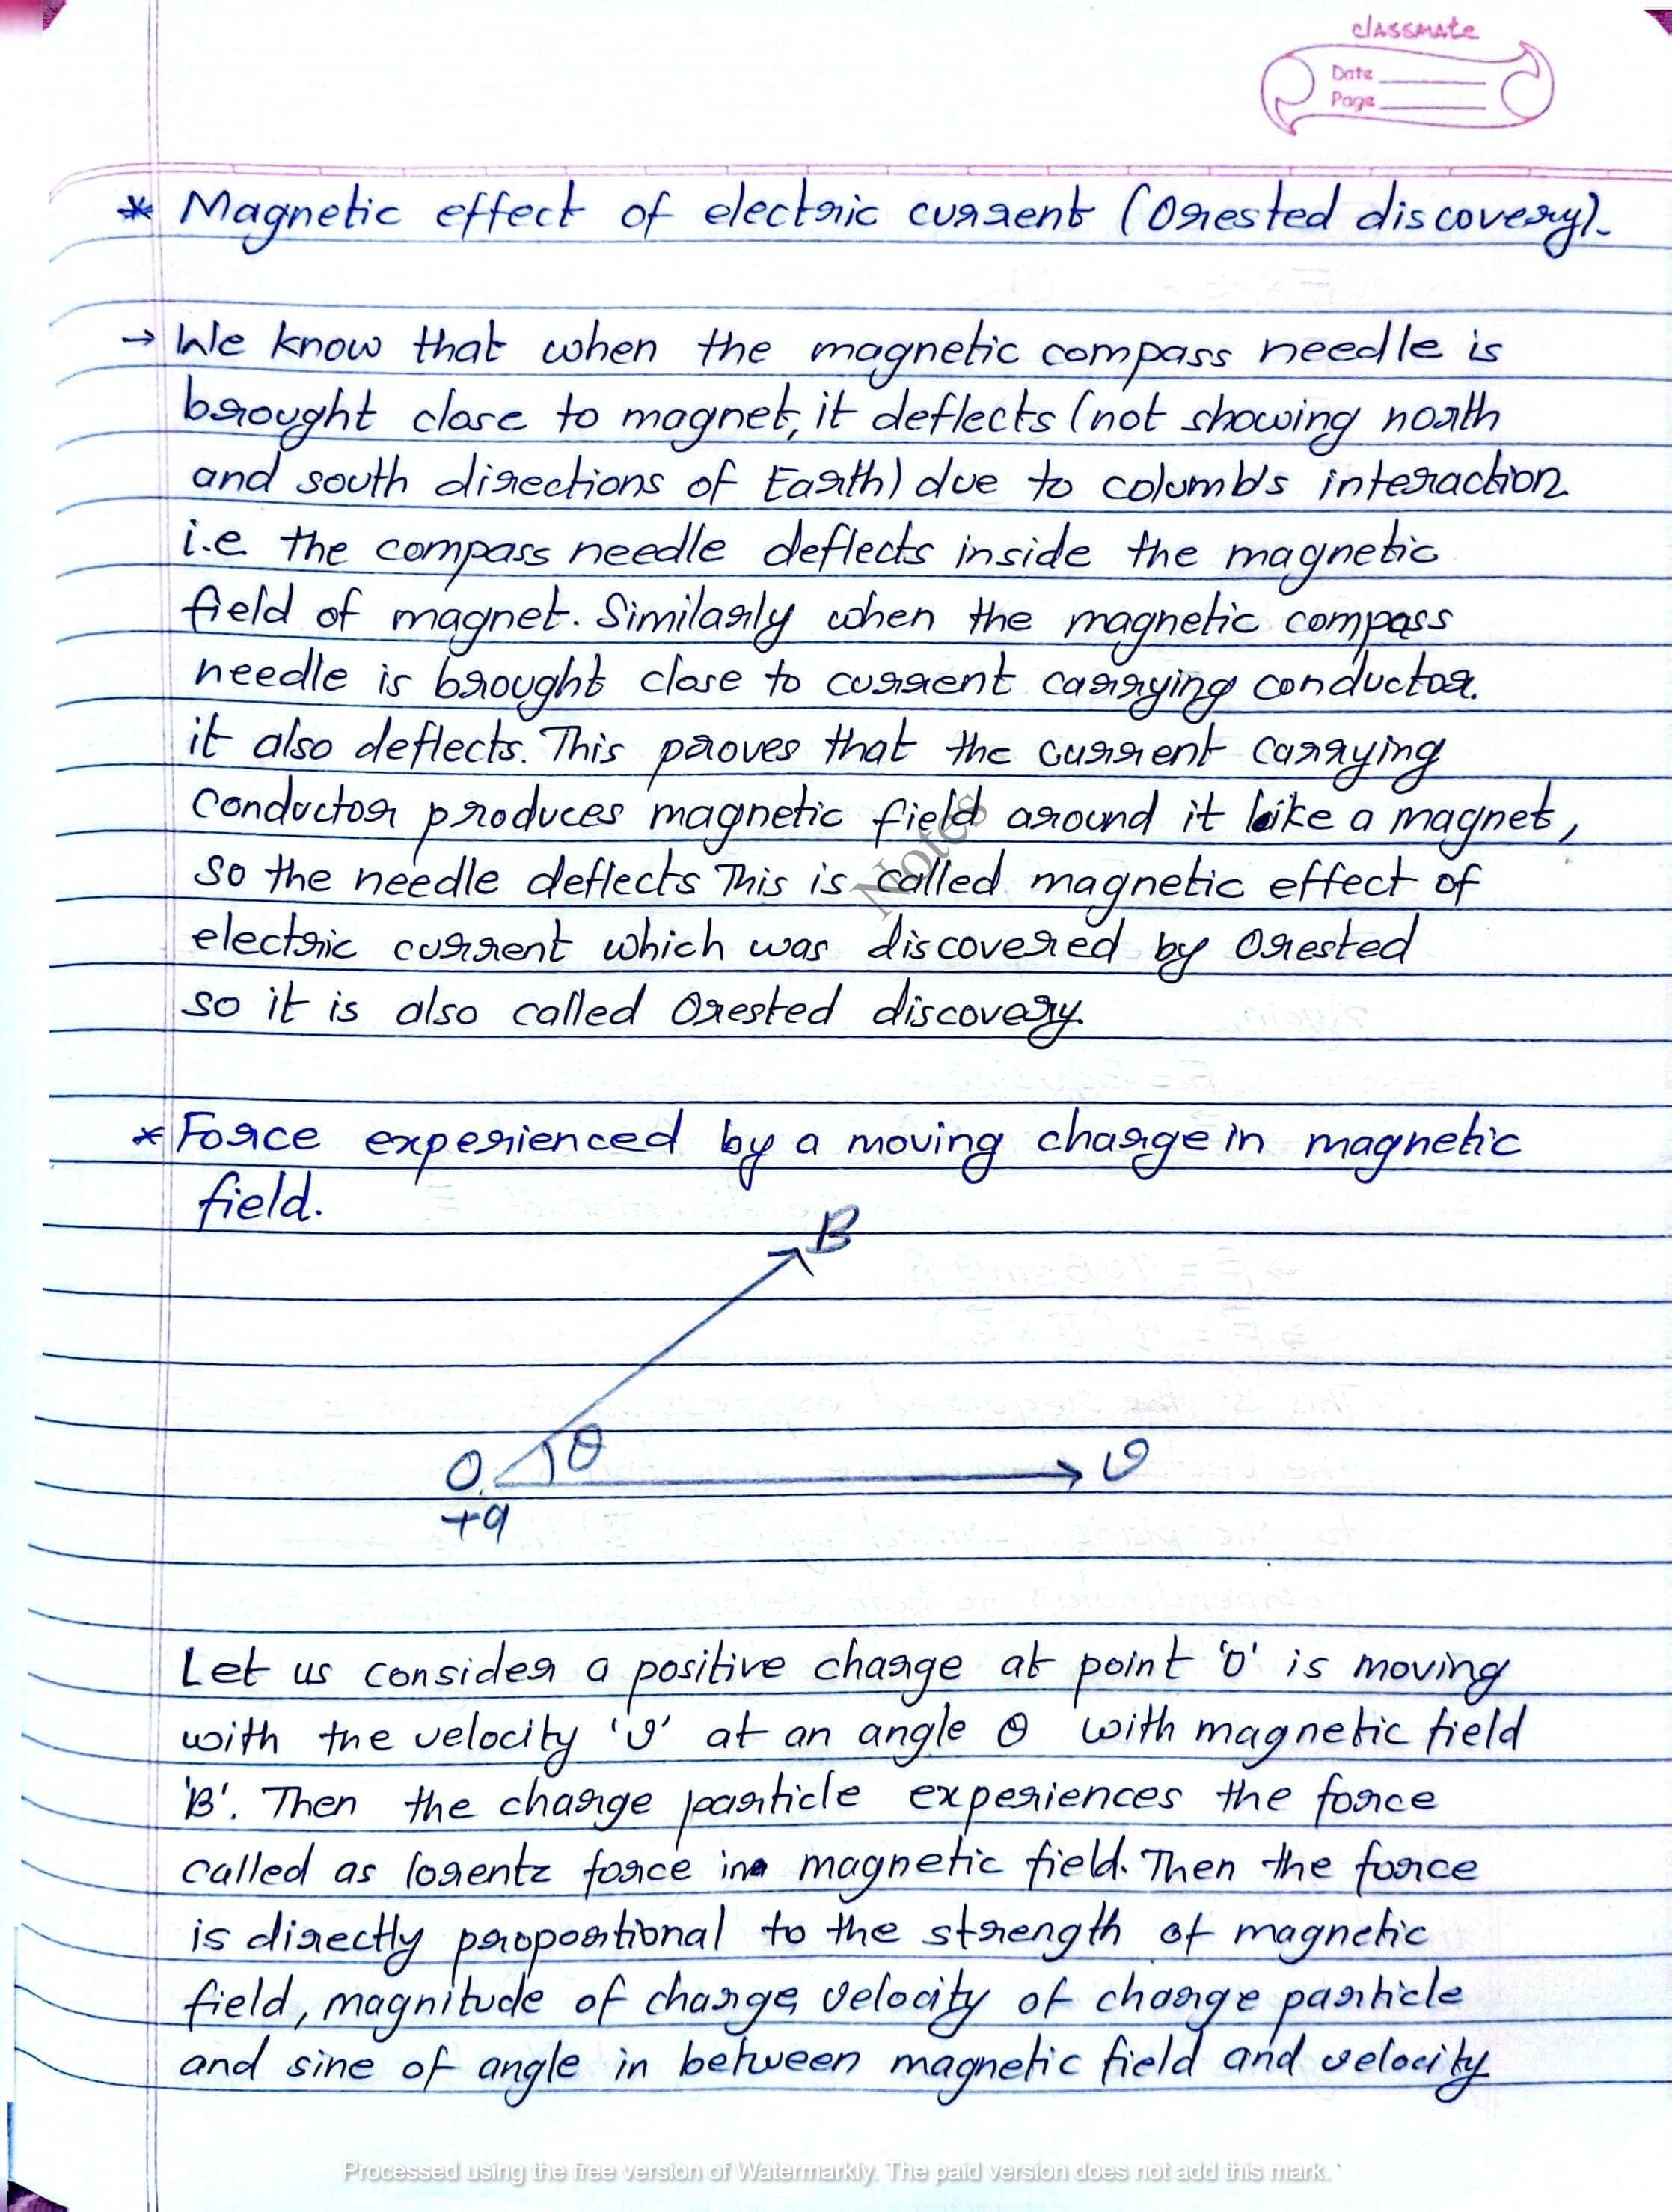 classmate
Date
Page
* Magnetic effect of electric current (Orested discovery).
→ We know that when the magnetic compass needle is
brought close to magnet, it deflects (not showing north
and south directions of Earth) due to columb's interaction.
i.e. the compass needle deflects inside the magnetic
field of magnet. Similarly when the magnetic compass
needle is brought close to current carrying conductor.
it also deflects. This proves that the current carrying
conductor produces magnetic field around it like a magnet,
so the needle deflects This is called magnetic effect of
electric current which was discovered by Orested
so it is also called Orested discovery.
Notes
* Force experienced by a moving charge in magnetic
field.
B
θ
O
v
+q
Let us consider a positive charge at point 'O' is moving
with the velocity 'v' at an angle θ with magnetic field
'B'. Then the charge particle experiences the force
called as lorentz force in magnetic field. Then the force
is directly proportional to the strength of magnetic
field, magnitude of charge, velocity of charge particle
and sine of angle in between magnetic field and velocity
Processed using the free version of Watermarkly. The paid version does not add this mark.